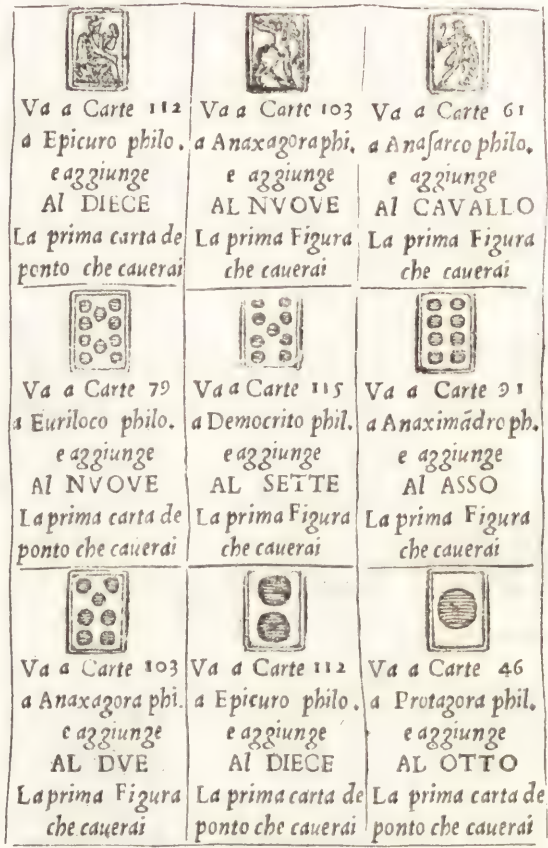 Va a Carte 112
a Epicuro philo.
e aggiunge
Al DIECE
La prima carta de
ponto che cauerai
Va a Carte 103
a Anaxagora phi.
e aggiunge
AL NVOVE
La prima Figura
che cauerai
Va a Carte 61
a Anaſarco philo.
e aggiunge
Al CAVALLO
La prima Figura
che cauerai
Va a Carte 79
a Euriloco philo.
e aggiunge
Al NVOVE
La prima carta de
ponto che cauerai
Va a Carte 115
a Democrito phil.
e aggiunge
AL SETTE
La prima Figura
che cauerai
Va a Carte 91
a Anaximãdro ph.
e aggiunge
Al ASSO
La prima Figura
che cauerai
Va a Carte 103
a Anaxagora phi.
e aggiunge
AL DVE
La prima Figura
che cauerai
Va a Carte 112
a Epicuro philo.
e aggiunge
Al DIECE
La prima carta de
ponto che cauerai
Va a Carte 46
a Protagora phil.
e aggiunge
AL OTTO
La prima carta de
ponto che cauerai